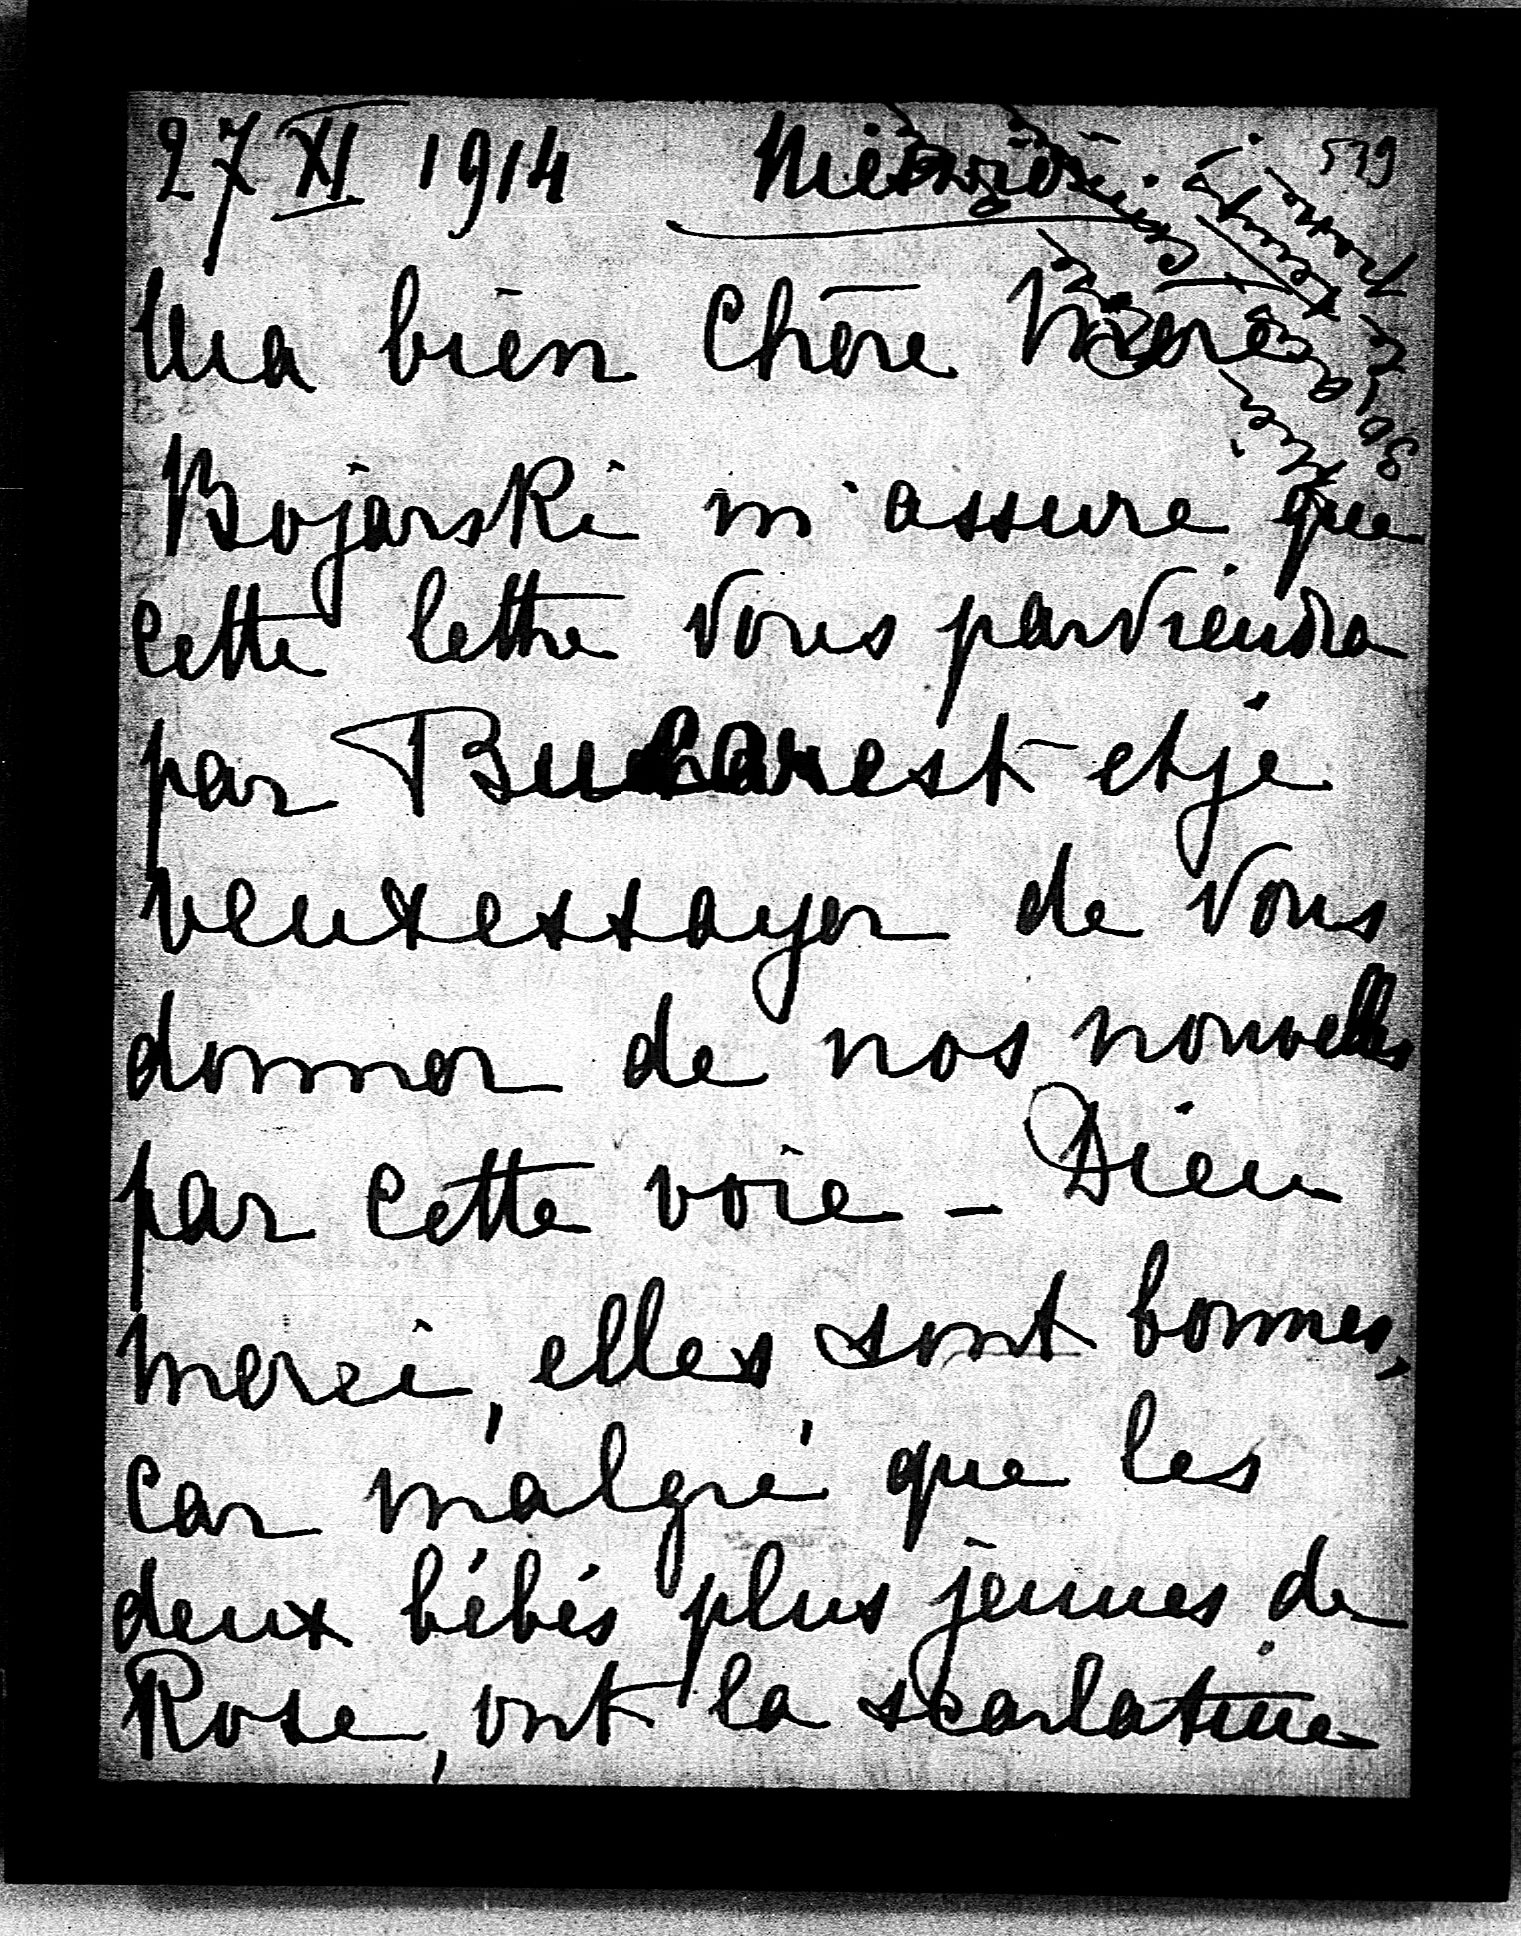 27 XI 1914
539
Ma bien Chère
Bojarski m'assure que
cette lettre Vous parviendra
par Bucarest et je
veux essayer de Vous
donner de nos nouvelles
par cette voie – Dieu
merci, elles sont bonnes,
car malgré que les
deux bébés plus jeunes de
Rose, ont la scarlatine